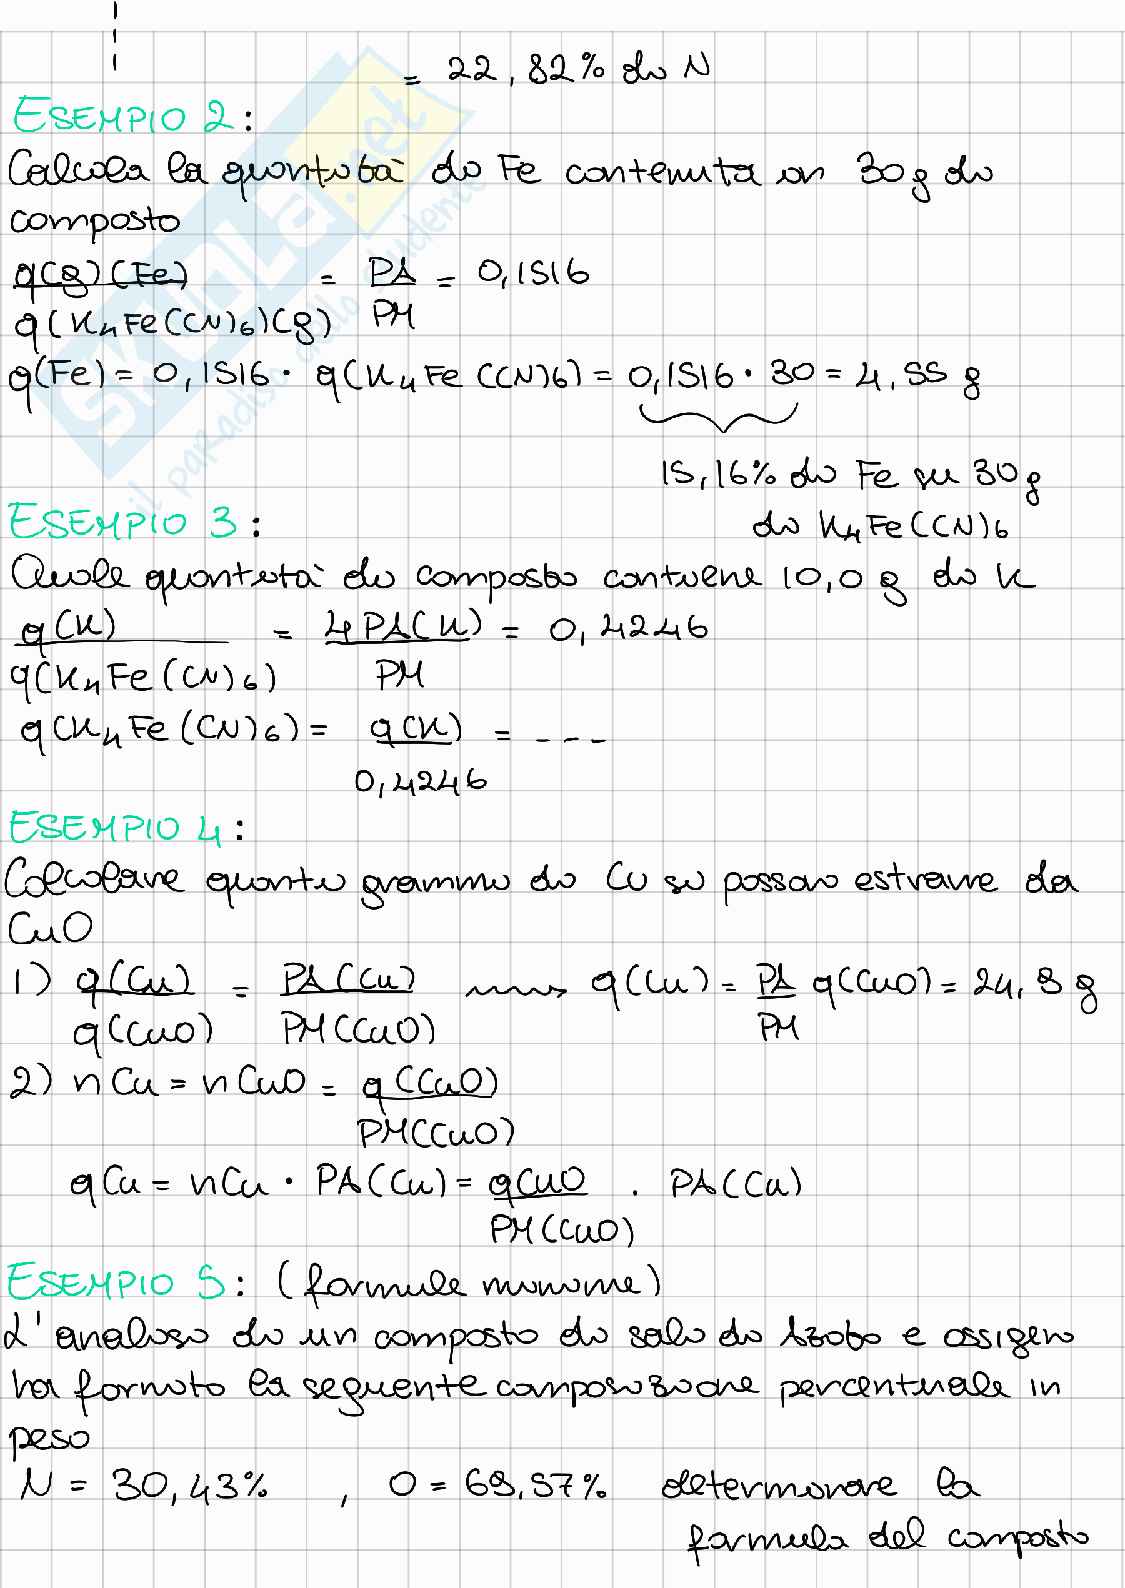 = 22,82% di N
ESEMPIO 2:
Calcola la quantità di Fe contenuta in 30g di
composto
q(g)(Fe) / q(K4Fe(CN)6)(g) = PA / PM = 0,1516
q(Fe) = 0,1516 · q(K4Fe(CN)6) = 0,1516 · 30 = 4,55 g
15,16% di Fe su 30g
di K4Fe(CN)6
ESEMPIO 3:
Quale quantità di composto contiene 10,0 g di K
q(K) / q(K4Fe(CN)6) = 4PA(K) / PM = 0,4246
q(K4Fe(CN)6) = q(K) / 0,4246 = - - -
ESEMPIO 4:
Calcolare quanti grammi di Cu si possono estrarre da
CuO
1) q(Cu) / q(CuO) = PA(Cu) / PM(CuO) → q(Cu) = PA / PM q(CuO) = 24,8 g
2) nCu = nCuO = q(CuO) / PM(CuO)
qCu = nCu · PA(Cu) = qCuO / PM(CuO) · PA(Cu)
ESEMPIO 5: (formule minime)
L'analisi di un composto di solo di Azoto e ossigeno
ha fornito la seguente composizione percentuale in
peso
N = 30,43% , O = 69,57% determinare la
formula del composto
SKUOLA.net
il paradiso dello studente